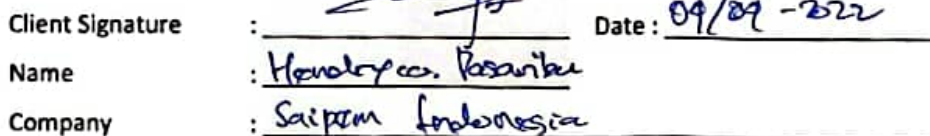 Client Signature : Date : 09/09-2022
Name : Hendry cc. Pasaribu
Company : Saipem Indonesia